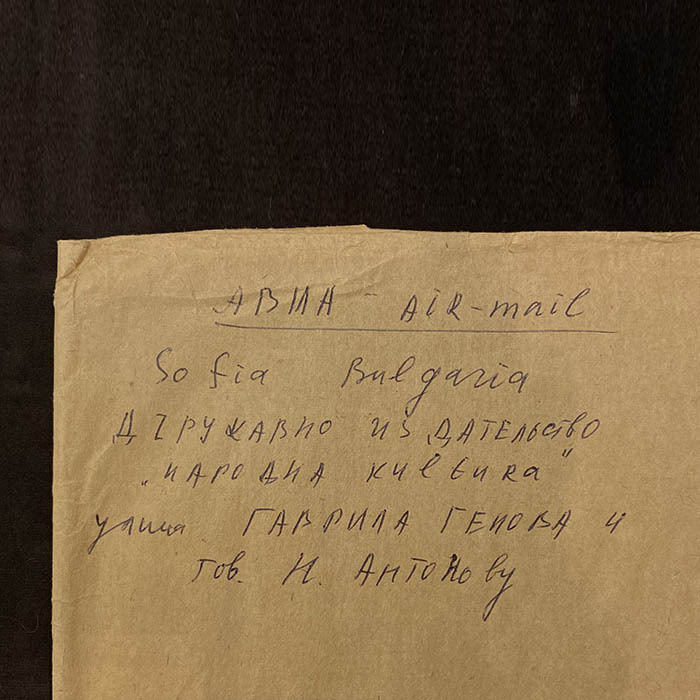 АВИА - AiR-mail
Sofia Bulgaria
ДЪРУЖАВНО ИЗДАТЕЛЬСТВО
"НАРОДНА КУЛТУRА"
улица ГАВРИЛА ГЕНОВА 4
тов. Н. АНТОНОВУ